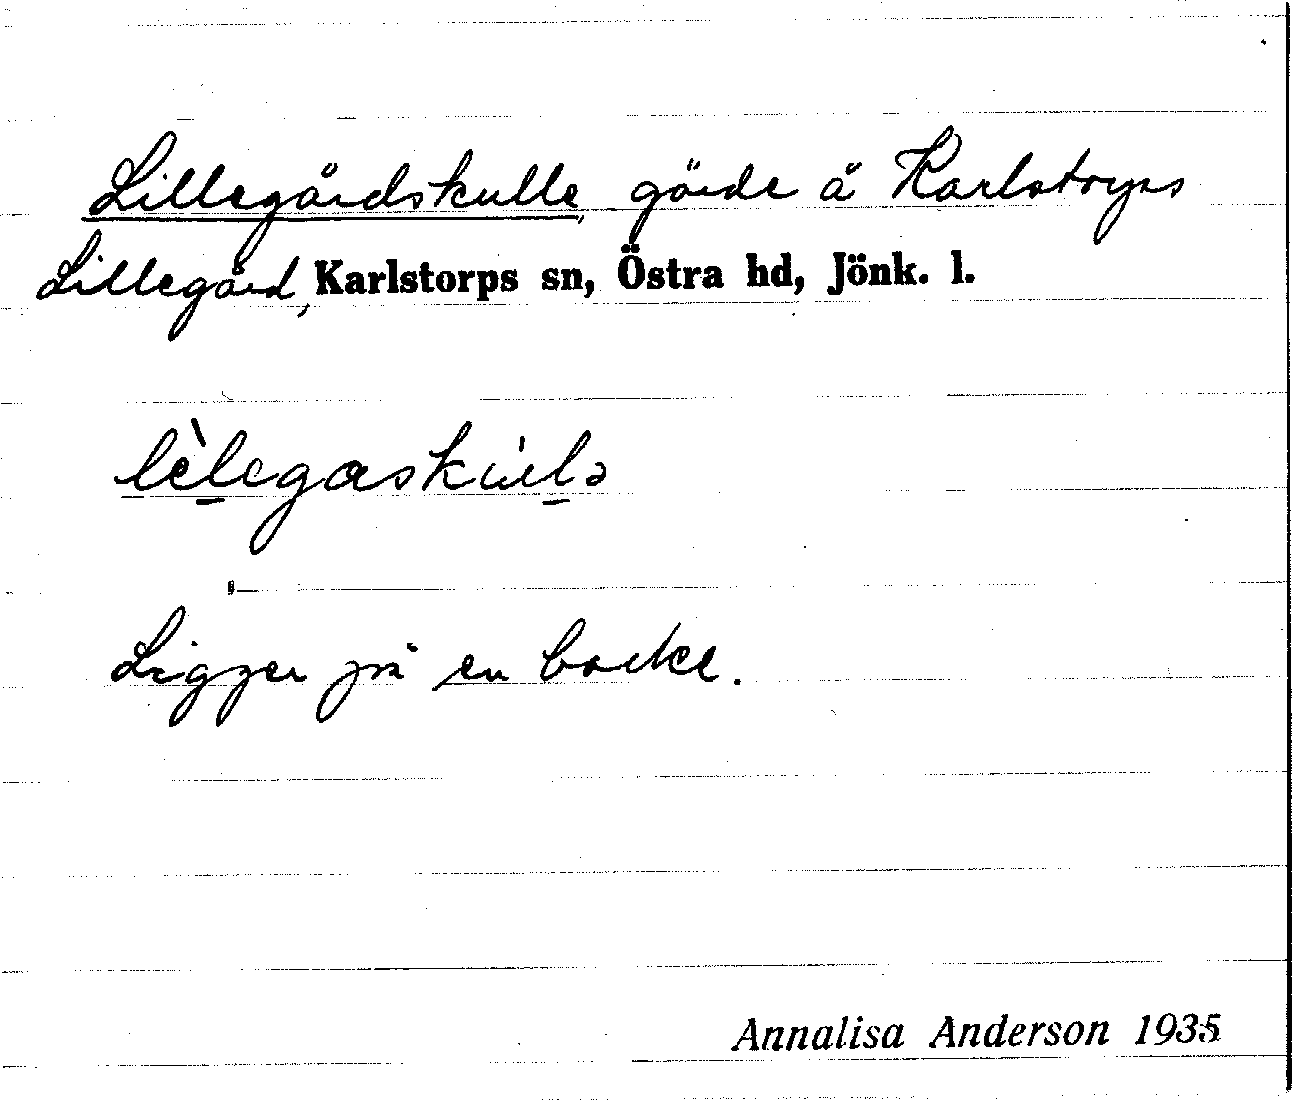 Lillegårdskulle, gärde å Karlstorps
Lillegård, Karlstorps sn, Östra hd, Jönk. l.
lèlegaskùlə
Ligger på en backe.
Annalisa Anderson 1935